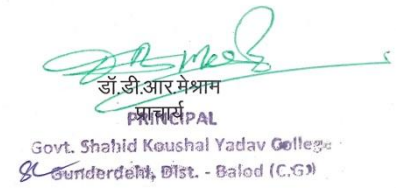 डॉ.डी.आर.मेश्राम
प्राचार्य
PRINCIPAL
Govt. Shahid Koushal Yadav College
Gunderdehi, Dist. - Balod (C.G)